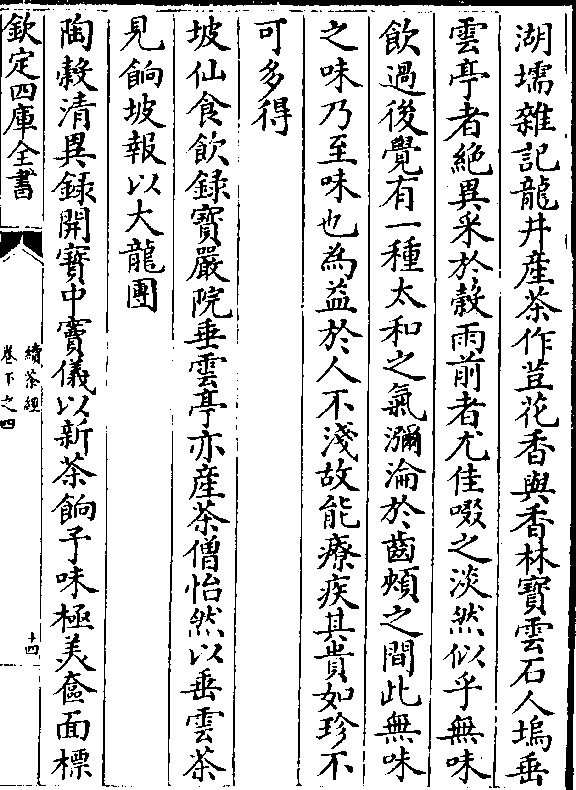 湖壖雜記龍井産茶作荳花香與香林寶雲石人塢垂
雲亭者絶異采於穀雨前者尤佳啜之淡然似乎無味
飲過後覺有一種太和之氣瀰淪於齒頰之間此無味
之味乃至味也為益於人不淺故能療疾其貴如珍不
可多得
坡仙食飲録寶嚴院垂雲亭亦産茶僧怡然以垂雲茶
見餉坡報以大龍團
陶穀清異録開寶中竇儀以新茶餉予味極美奩面標
欽定四庫全書
續茶經
卷下之四
十四